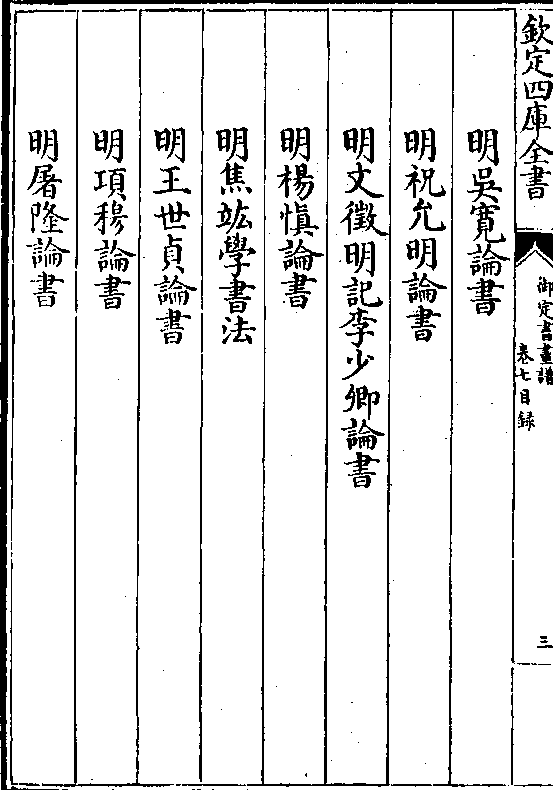 欽定四庫全書
御定書畫譜
卷七目録
三
明吳寛論書
明祝允明論書
明文徵明記李少卿論書
明楊慎論書
明焦竑學書法
明王世貞論書
明項穆論書
明屠隆論書